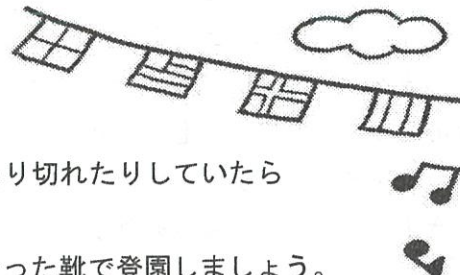 り切れたりしていたら
った靴で登園しましょう。